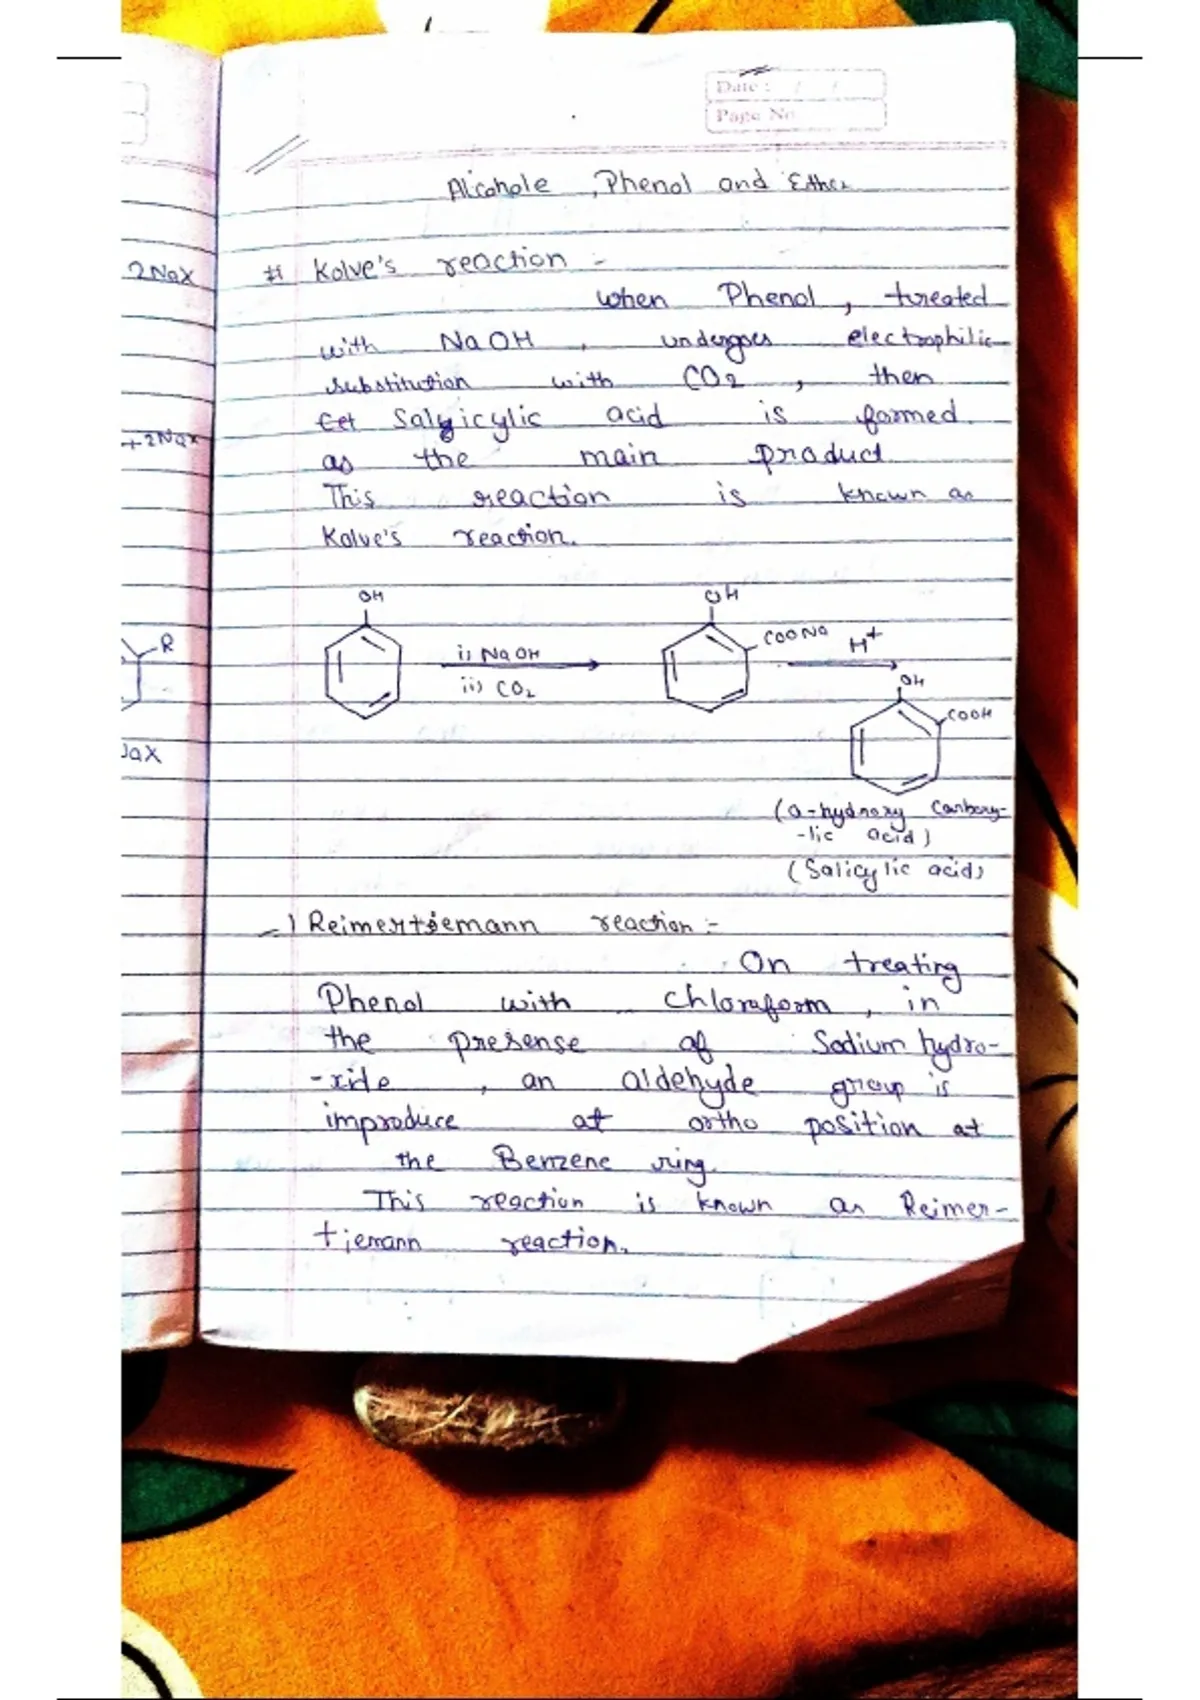 Date : / /
Page No
Alcohole , Phenol and Ether
2NaX
# Kolve's reaction :-
when Phenol , treated
with NaOH , undergoes electrophilic
substitution with CO2 , then
Salyicylic acid is formed.
+2Nax
as the main product
This reaction is known as
Kolve's reaction.
OH
OH
R
i) NaOH
COONa
H+
ii) CO2
OH
COOH
aX
(o-hydroxy Carboxy-
-lic acid)
(Salicylic acid)
Reimertiemann reaction :-
On treating
Phenol with Chloroform , in
the presense of Sodium hydro-
-xide , an aldehyde group is
improduce at ortho position at
the Benzene ring.
This reaction is known as Reimer-
tiemann reaction.